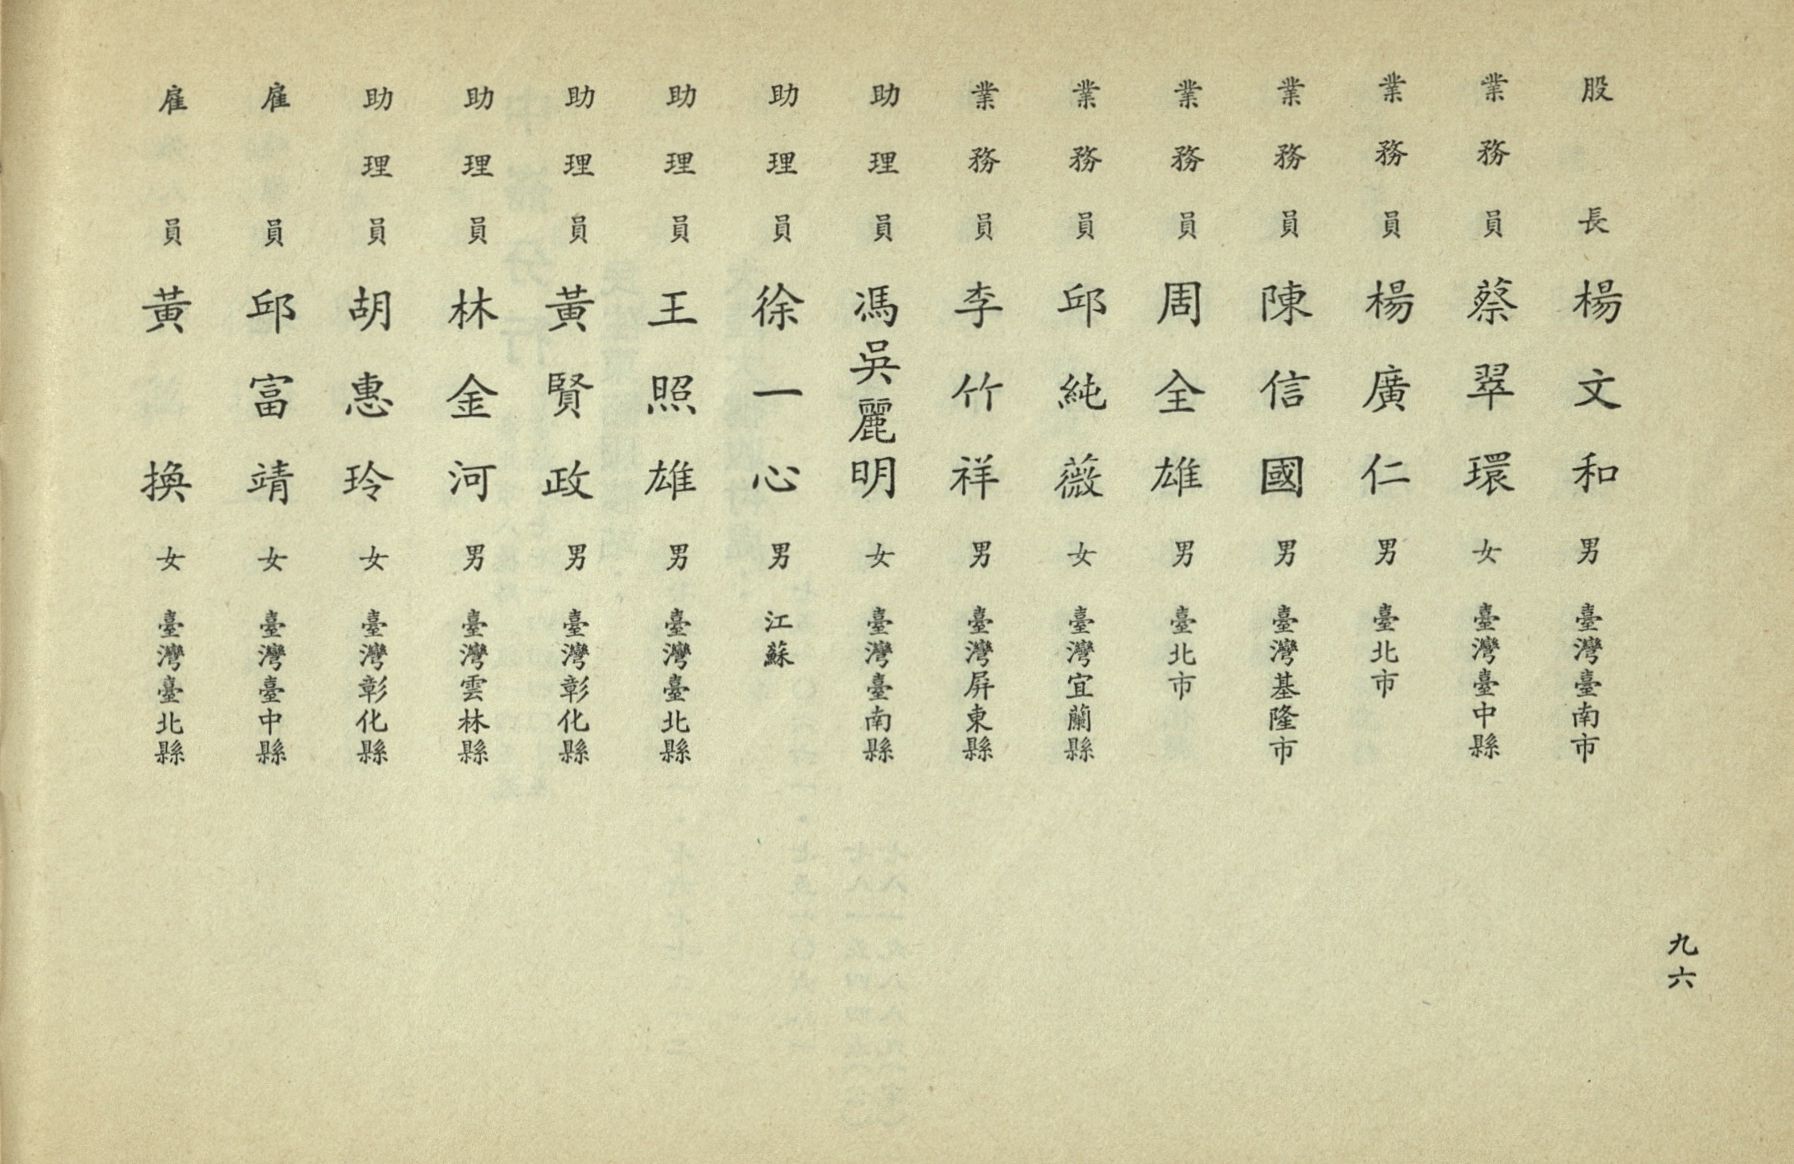 九六
股長楊文和男臺灣臺南市
業務員蔡翠環女臺灣臺中縣
業務員楊廣仁男臺北市
業務員陳信國男臺灣基隆市
業務員周全雄男臺北市
業務員邱純薇女臺灣宜蘭縣
業務員李竹祥男臺灣屏東縣
助理員馮吳麗明女臺灣臺南縣
助理員徐一心男江蘇
助理員王照雄男臺灣臺北縣
助理員黃賢政男臺灣彰化縣
助理員林金河男臺灣雲林縣
助理員胡惠玲女臺灣彰化縣
雇員邱富靖女臺灣臺中縣
雇員黃換女臺灣臺北縣